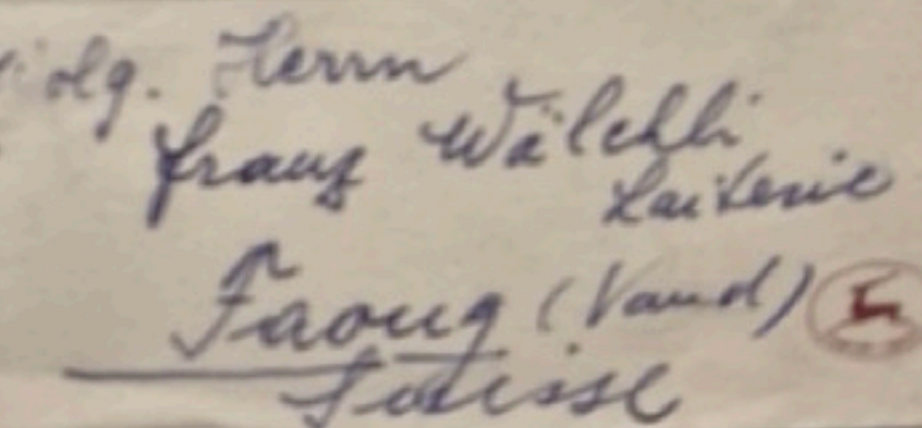 Herrn
Franz Wälchli
Laiterie
Faoug (Vaud)
Suisse